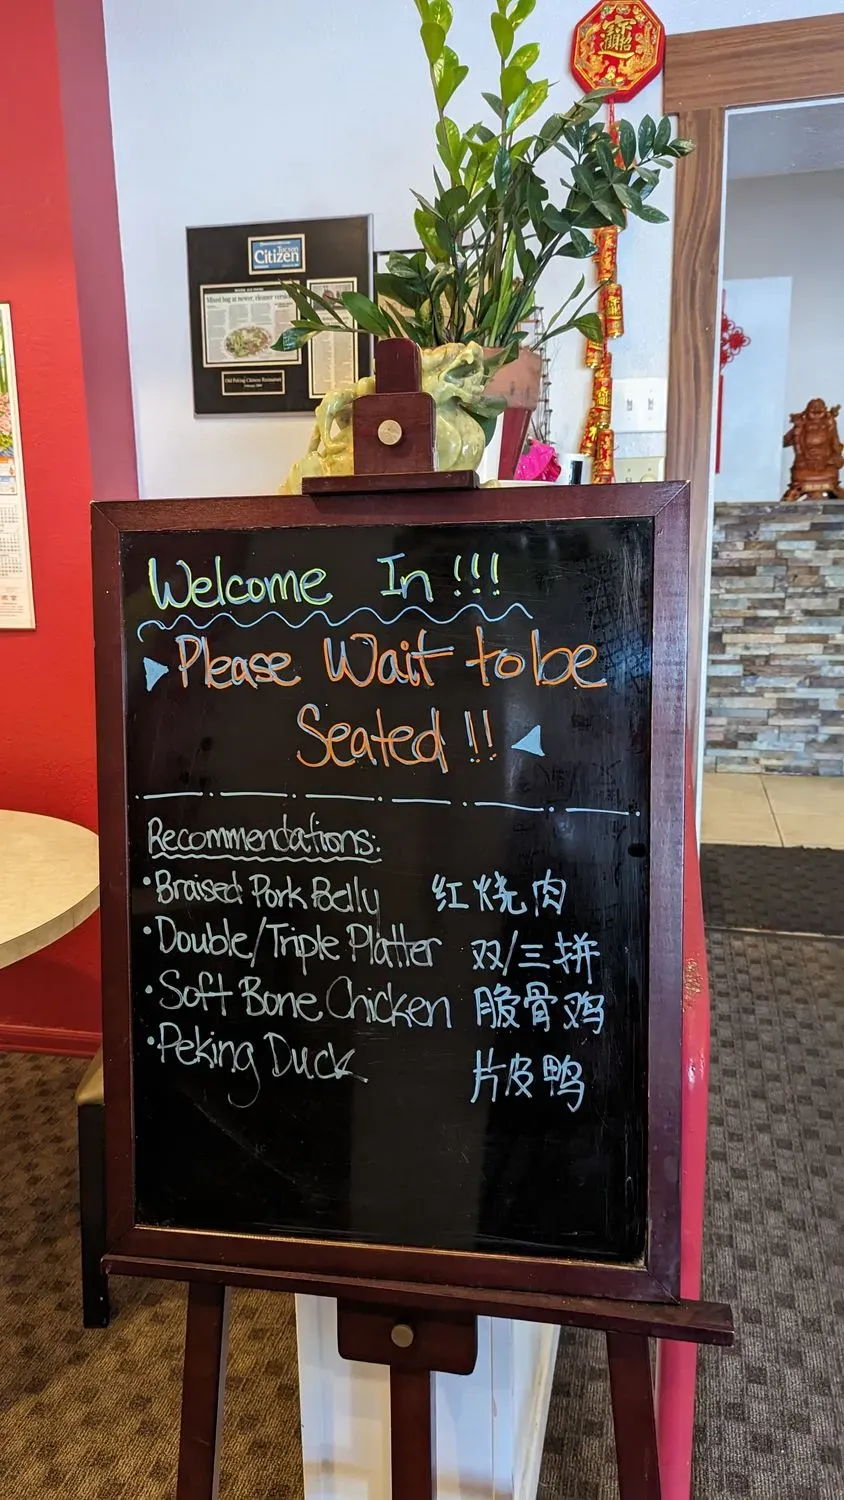 招财进宝
Tucson
Citizen
Mixed bag at newer, cleaner
Old Peking Chinese Restaurant
Welcome In!!!
Please Wait to be
Seated!!
Recommendations:
•Braised Pork Belly 红烧肉
•Double/Triple Platter 双/三拼
•Soft Bone Chicken 脆骨鸡
•Peking Duck 片皮鸭